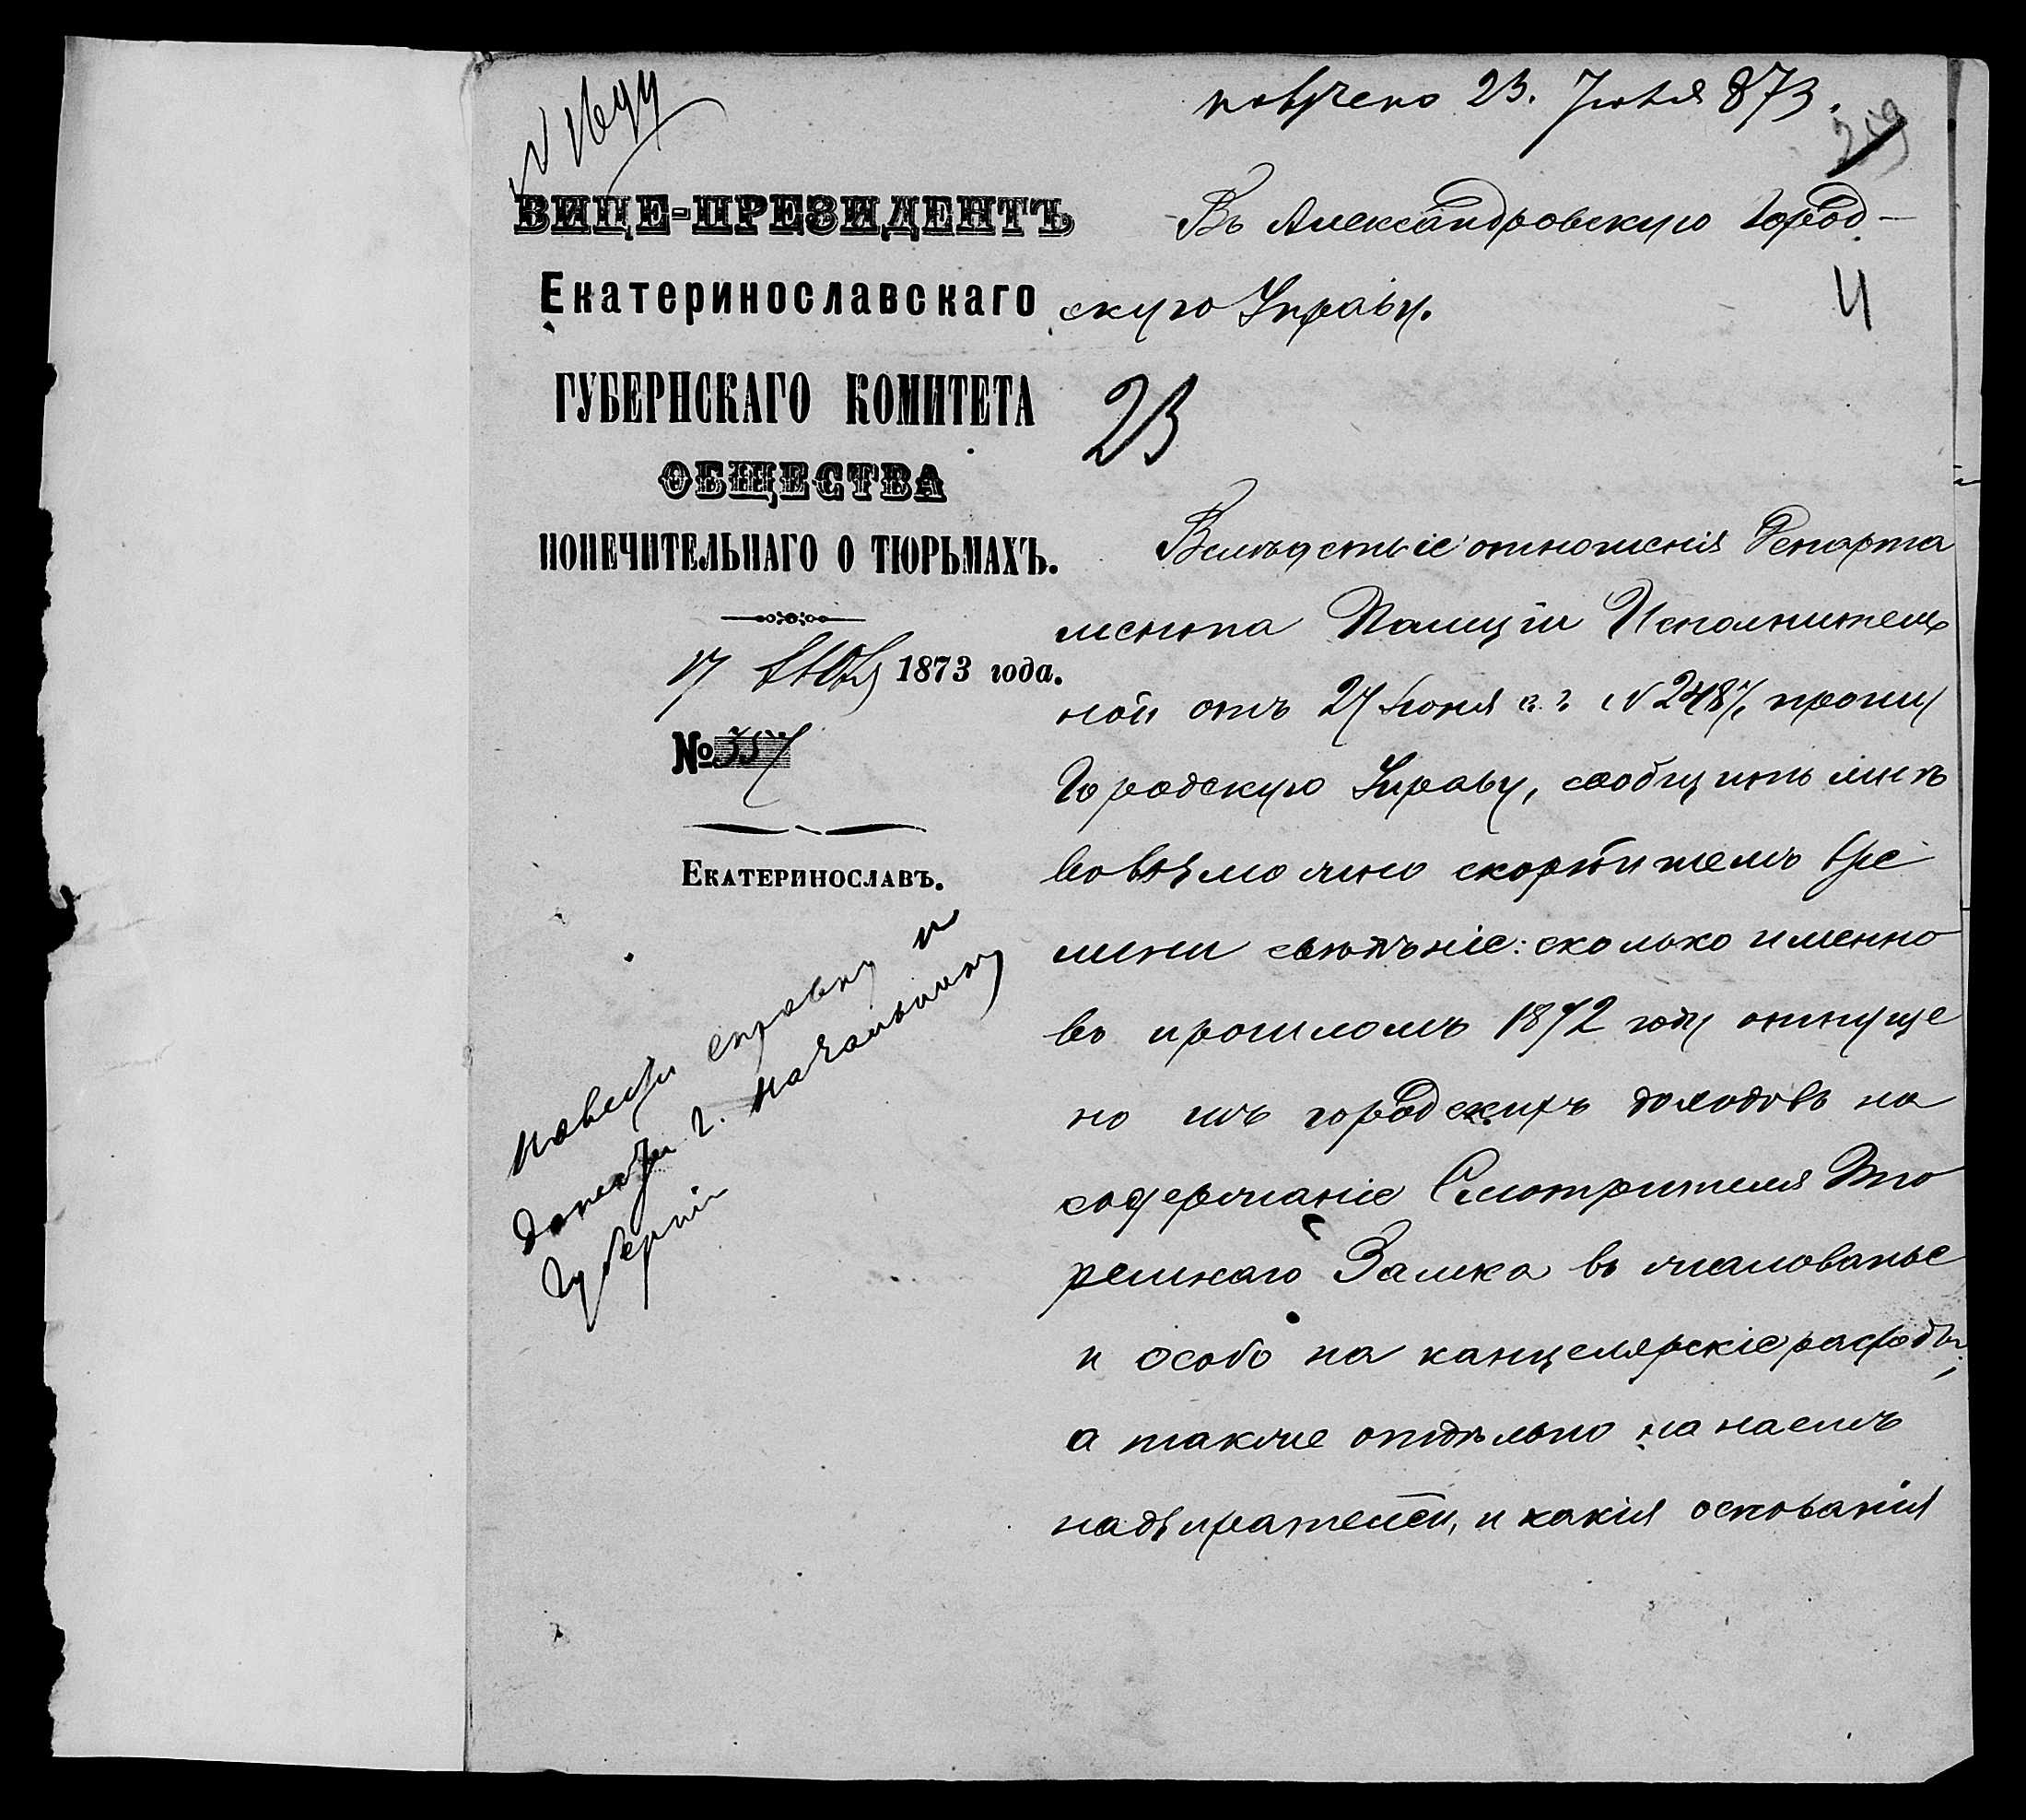 N 1644
получено 23. Іюля 873.
259
ВИЦЕ-ПРЕЗИДЕНТЪ
Екатеринославскаго
ГУБЕРНСКАГО КОМИТЕТА
ОБЩЕСТВА
ПОПЕЧИТЕЛЬНАГО О ТЮРЬМАХЪ.
17 Іюля 1873 года.
№ 357
ЕКАТЕРИНОСЛАВЪ.
навести справку и
донести г. Начальнику
Губерніи
Въ Александровскую Город-
скую Управу.
4
23
Вслѣдствіе отношенія Департа
мента Полиціи Исполнитель
ной отъ 27 Іюня с. г. N 2487, прошу
Городскую Управу, сообщить мнѣ
въ возможно скорѣйшемъ вре
мени свѣдѣніе: сколько именно
въ прошломъ 1872 году отпуще
но изъ городскихъ доходовъ на
содержаніе Смотрителя Тю
ремнаго Замка въ жалованье
и особо на канцелярскіе расходы;
а также отдѣльно на наемъ
надзирателей, и какія основанія